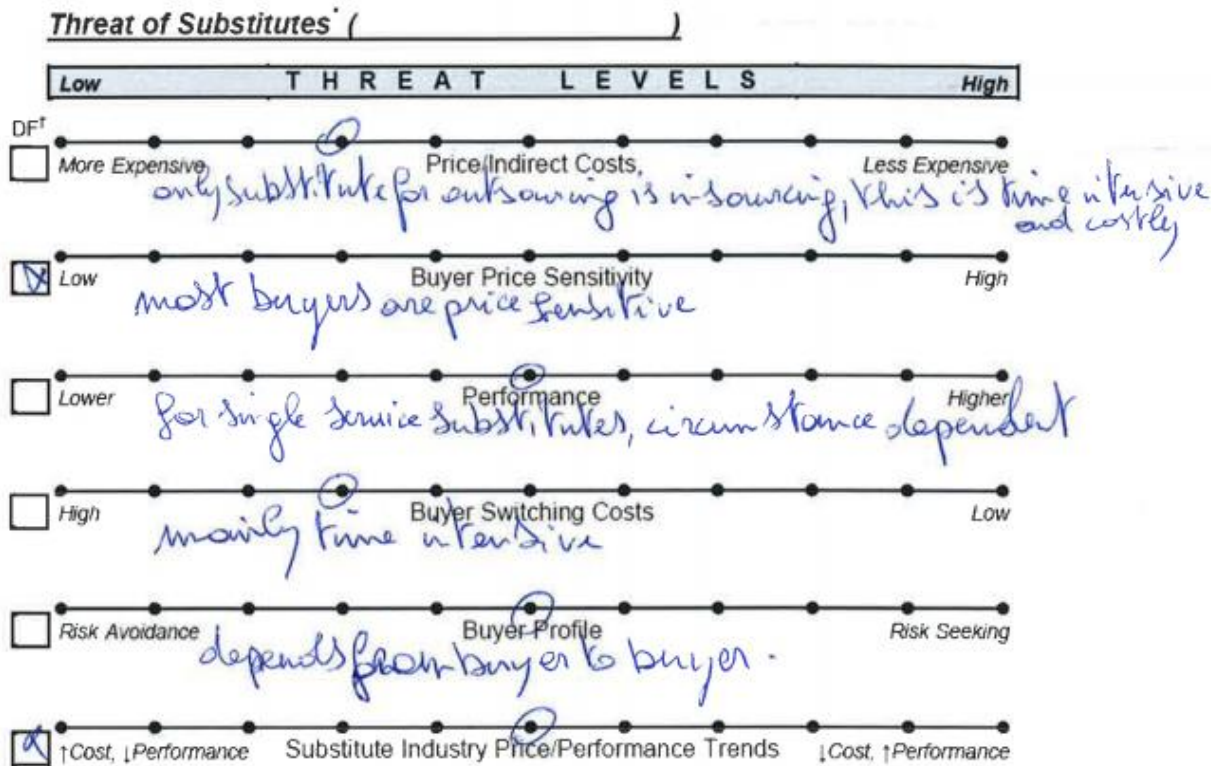 Threat of Substitutes* ( )
Low THREAT LEVELS High
DF†
More Expensive Price/Indirect Costs Less Expensive
only substitute for outsourcing is in-sourcing, this is time intensive
and costly
Low Buyer Price Sensitivity High
most buyers are price sensitive
Lower Performance Higher
for single service substitutes, circumstance dependent
High Buyer Switching Costs Low
mainly time intensive
Risk Avoidance Buyer Profile Risk Seeking
depends from buyer to buyer.
↑Cost, ↓Performance Substitute Industry Price/Performance Trends ↓Cost, ↑Performance